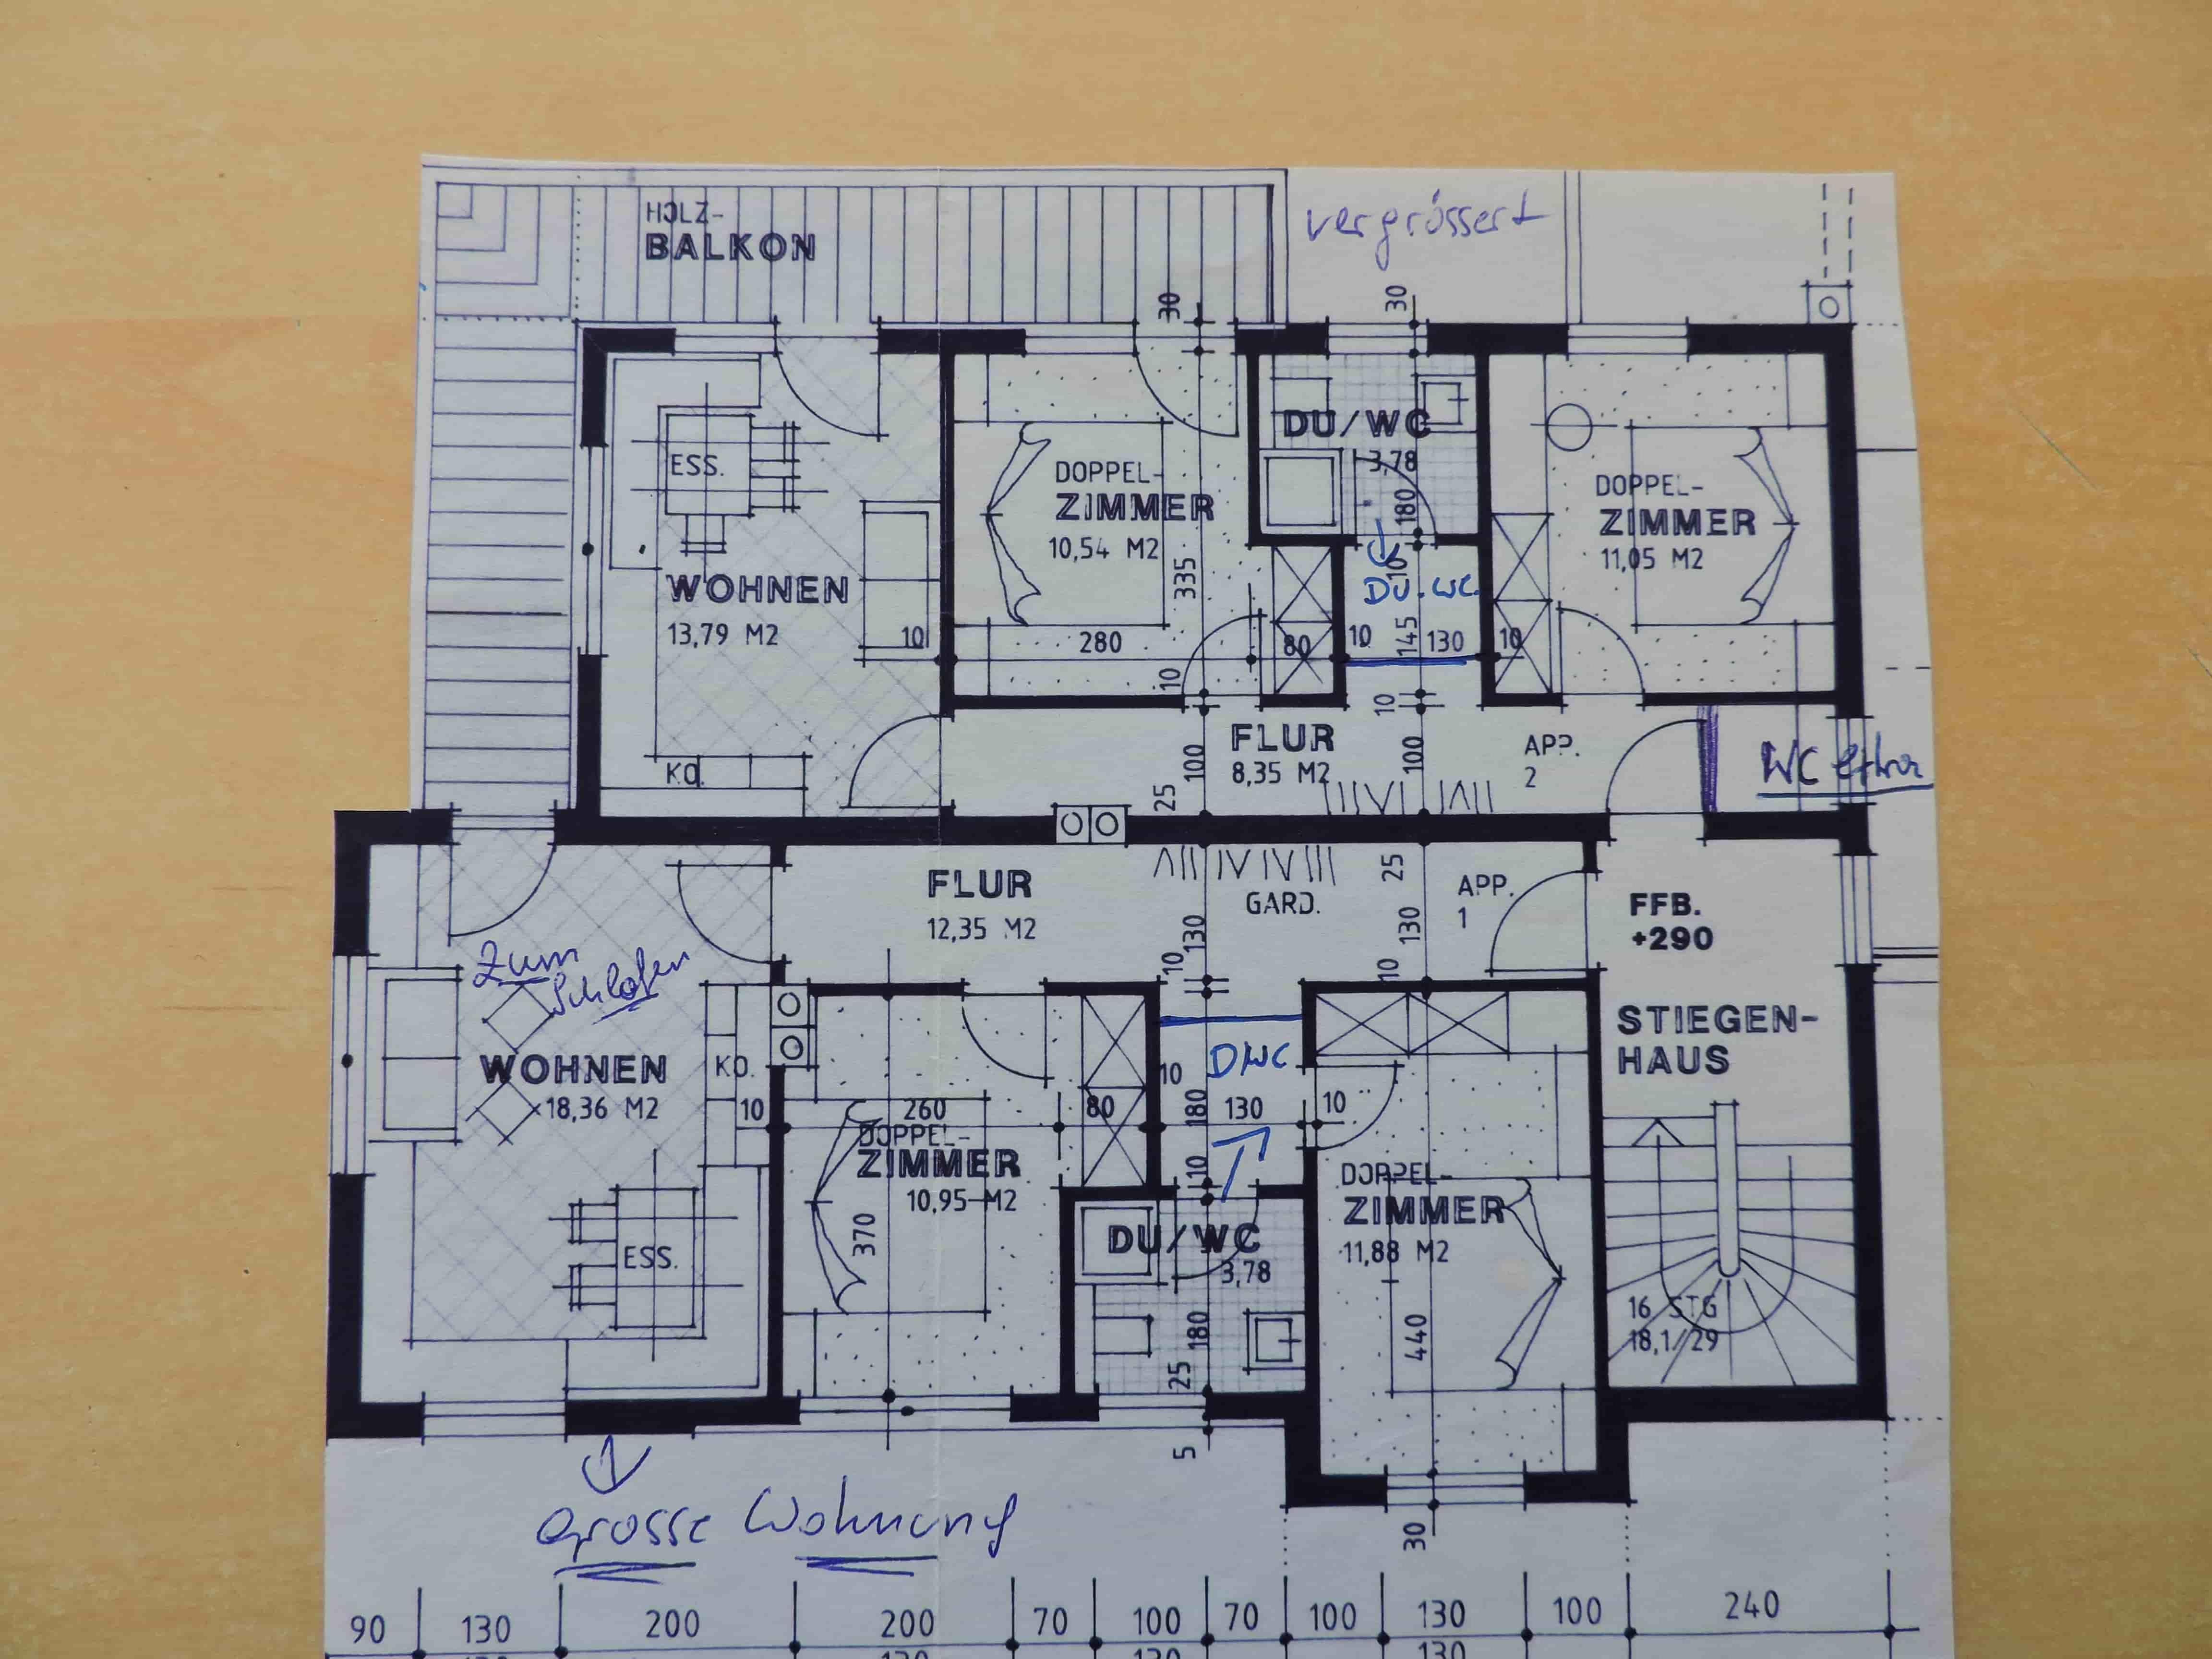 HOLZ-
BALKON
vergrössert
30
30
ESS.
WOHNEN
13,79 M2
10
KO.
DOPPEL-
ZIMMER
10,54 M2
335
280
80
10
DU/WC
3,78
180
10
DU.WC.
10
145
130
10
10
DOPPEL-
ZIMMER
11,05 M2
FLUR
8,35 M2
100
25
100
APP.
2
WC extra
FLUR
12,35 M2
GARD.
25
130
10
130
10
APP.
1
FFB.
+290
STIEGEN-
HAUS
16 STG
18,1/29
zum
Schlafen
WOHNEN
18,36 M2
KO.
10
ESS.
260
80
DOPPEL-
ZIMMER
10,95 M2
370
DWC
10
180
130
10
10
DU/WC
3,78
180
25
5
DOPPEL-
ZIMMER
11,88 M2
440
30
Grosse Wohnung
90
130
200
200
70
100
70
100
130
100
240
130
130